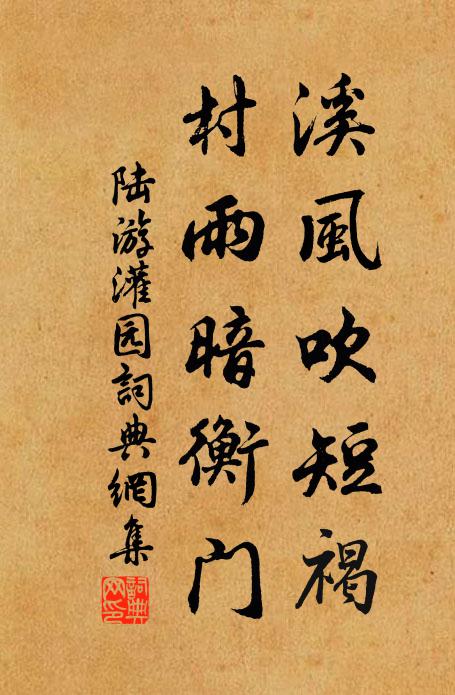 溪風吹短褐
村雨暗衡門
陆游灌园詞典網集
詞典
网印